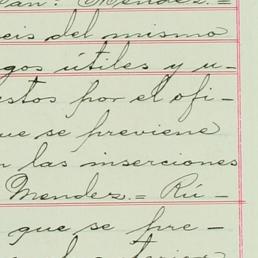 Mendez.=
eis del mismo
gos útiles y u-
estos por el ofi-
que se previene
n las inserciones
Mendez.= Rú-
que se pre-